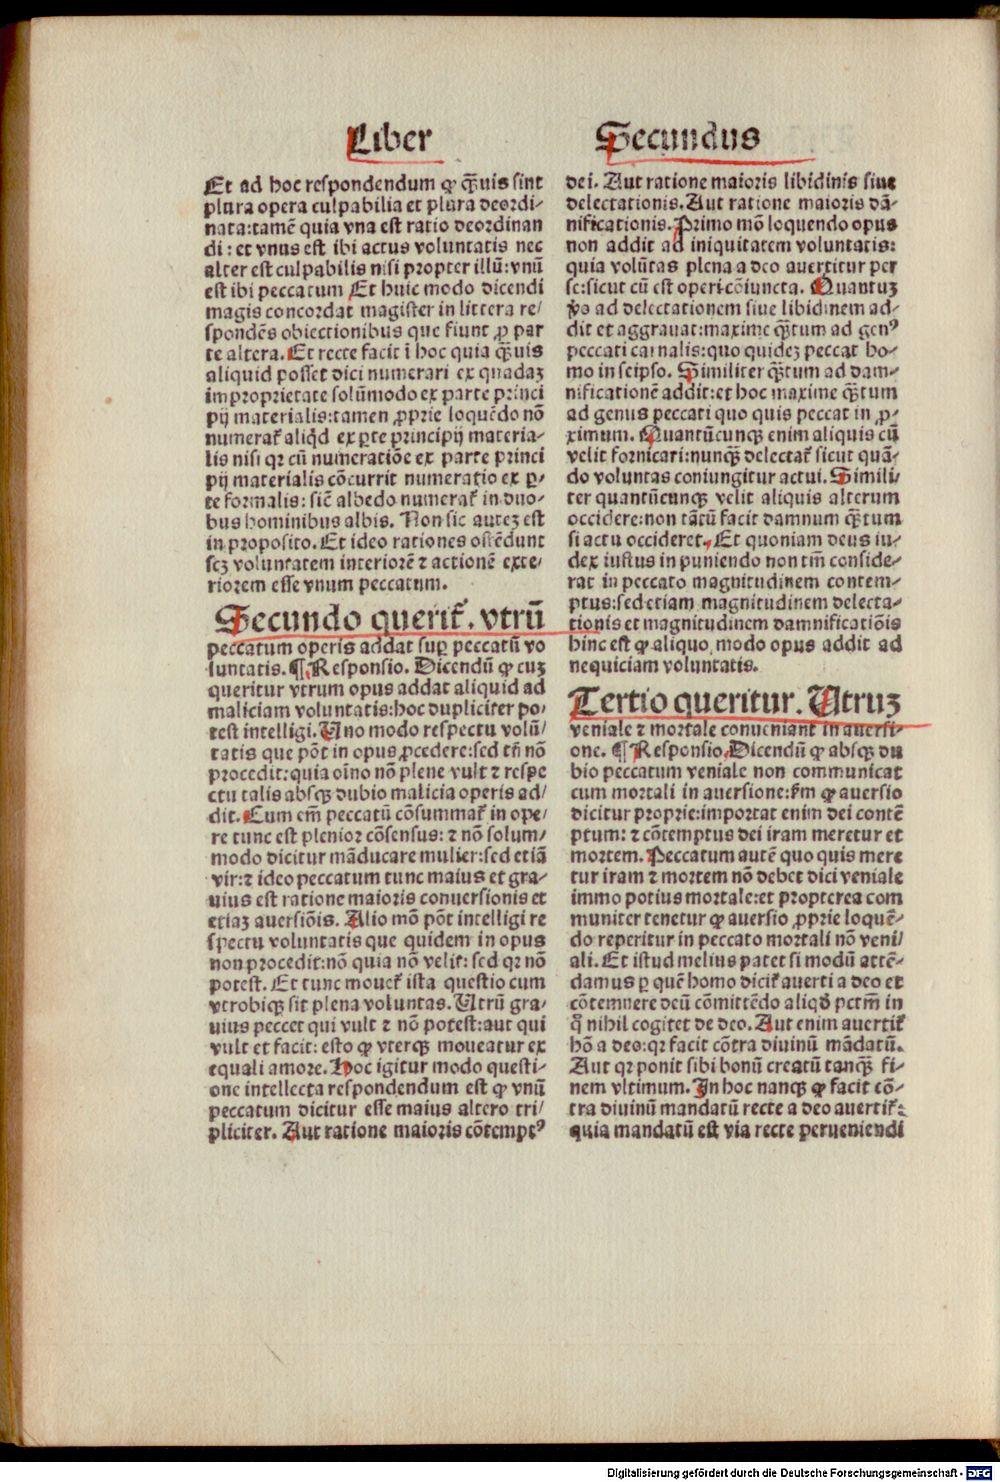 Liber Secundus
Et ad hoc respondendum ꝙ q̄͂uis sint
plura opera culpabilia et plura deordi-
nata:tamē quia vna est ratio deordinan
di: et vnus est ibi actus voluntatis nec
alter est culpabilis nisi propter illū:vnū
est ibi peccatum Et huic modo dicendi
magis concordat magister in littera re/
spondēs obiectionibus que fiunt ꝓ par
te altera. Et recte facit ī hoc quia q̄͂uis
aliquid posset dici numerari ex quadaꝫ
improprietate solūmodo ex parte princi
pij materialis:tamen ꝓprie loquēdo nō
numerat᷑ aliqd̄ ex ꝑte principij materia-
lis nisi qꝛ cū numeratiōe ex parte princi
pij materialis cōcurrit numeratio ex ꝑ-
te formalis: sic̄ albedo numerat᷑ in duo-
bus hominibus albis. Non sic auteꝫ est
in proposito. Et ideo rationes ostēdunt
scꝫ voluntatem interiorē ⁊ actionē exte/
riorem esse vnum peccatum.
Secundo querit᷑. vtrū
peccatum operis addat suꝑ peccatū vo
luntatis. ¶ Responsio. Dicendū ꝙ cuꝫ
queritur vtrum opus addat aliquid ad
maliciam voluntatis:hoc dupliciter po-
test intelligi. Uno modo respectu volū/
tatis que pōt in opus ꝓcedere:sed tn̄ nō
procedit:quia oīno nō plene vult ⁊ respe
ctu talis absqꝫ dubio malicia operis ad/
dit. Cum em̄ peccatū cōsummat᷑ in ope/
re tunc est plenior cōsensus: ⁊ nō solum/
modo dicitur māducare mulier:sed etiā
vir:⁊ ideo peccatum tunc maius et gra-
uius est ratione maioris conuersionis et
etiaꝫ auersiōis. Alio mō pōt intelligi re
spectu voluntatis que quidem in opus
non procedit:nō quia nō velit: sed qꝛ nō
potest. Et tunc mouet᷑ ista questio cum
vtrobiqꝫ sit plena voluntas. Utrū gra-
uius peccet qui vult ⁊ nō potest:aut qui
vult et facit: esto ꝙ vterqꝫ moueatur ex
equali amore. Hoc igitur modo questi-
one intellecta respondendum est ꝙ vnū
peccatum dicitur esse maius altero tri/
pliciter. Aut ratione maioris cōtemptꝰ
dei. Aut ratione maioris libidinis siue
delectationis. Aut ratione maioris dā-
nificationis. Primo mō loquendo opus
non addit ad iniquitatem voluntatis:
quia volūtas plena a deo auertitur per
se:sicut cū est operi cōiuncta. Quantuꝫ
v̊o ad delectationem siue libidinem ad-
dit et aggrauat:maxime q̄͂tum ad genꝰ
peccati carnalis:quo quideꝫ peccat ho-
mo in seipso. Similiter q̄͂tum ad dam-
nificationē addit:et hoc maxime q̄͂tum
ad genus peccati quo quis peccat in ꝓ-
ximum. Quantūcunqꝫ enim aliquis cū
velit fornicari:nunqꝫ̄ delectat᷑ sicut quā-
do voluntas coniungitur actui. Simili-
ter quantūcunqꝫ velit aliquis alterum
occidere:non tātū facit damnum q̄͂tum
si actu occideret. Et quoniam deus iu-
dex iustus in puniendo non tm̄ conside-
rat in peccato magnitudinem contem-
ptus:sed etiam magnitudinem delecta-
tionis et magnitudinem damnificatiōis
hinc est ꝙ aliquo modo opus addit ad
nequiciam voluntatis.
Tertio queritur. Utruꝫ
veniale ⁊ mortale conueniant in auersi-
one. ¶ Responsio. Dicendū ꝙ absqꝫ du
bio peccatum veniale non communicat
cum mortali in auersione:ẜm ꝙ auersio
dicitur proprie:importat enim dei contē
ptum: ⁊ cōtemptus dei iram meretur et
mortem. Peccatum autē quo quis mere
tur iram ⁊ mortem nō debet dici veniale
immo potius mortale:et propterea com
muniter tenetur ꝙ auersio ꝓprie loquē-
do reperitur in peccato mortali nō veni/
ali. Et istud melius patet si modū attē-
damus ꝑ quē homo dicit᷑ auerti a deo et
cōtemnere deū cōmittēdo aliqd̄ pctm̄ in
q̊ nihil cogitet de deo. Aut enim auertit᷑
hō a deo:qꝛ facit cōtra diuinū mādatū.
Aut qꝛ ponit sibi bonū creatū tanqꝫ̄ fi-
nem vltimum. In hoc nanqꝫ ꝙ facit cō-
tra diuinū mandatū recte a deo auertit᷑:
quia mandatū est via recte perueniendi
Digitalisierung gefördert durch die Deutsche Forschungsgemeinschaft - DFG